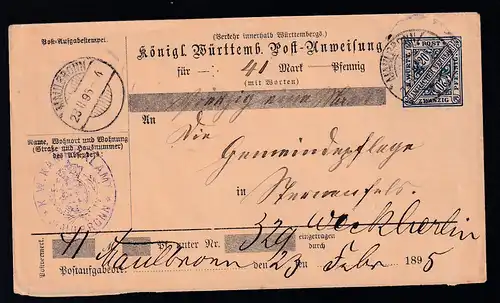 (Verkehr innerhalb Württembergs.)
Post-Aufgabestempel.
Königl. Württemb. Post-Anweisung
für 41 Mark — Pfennig
(mit Worten)
MAULBRONN
23 II 95
MAULBRONN
POST
20
ZWANZIG
An
Die
Name, Wohnort und Wohnung
(Straße und Hausnummer)
des Absenders:
Gemeindepflege
in
Sternenfels.
K.W.
MAULBRONN
Postvermerk.
41 M Pf. unter Nr. 329 eingetragen
durch
Weckherlin
Postaufgabeort: Maulbronn den 23 Febr 1895